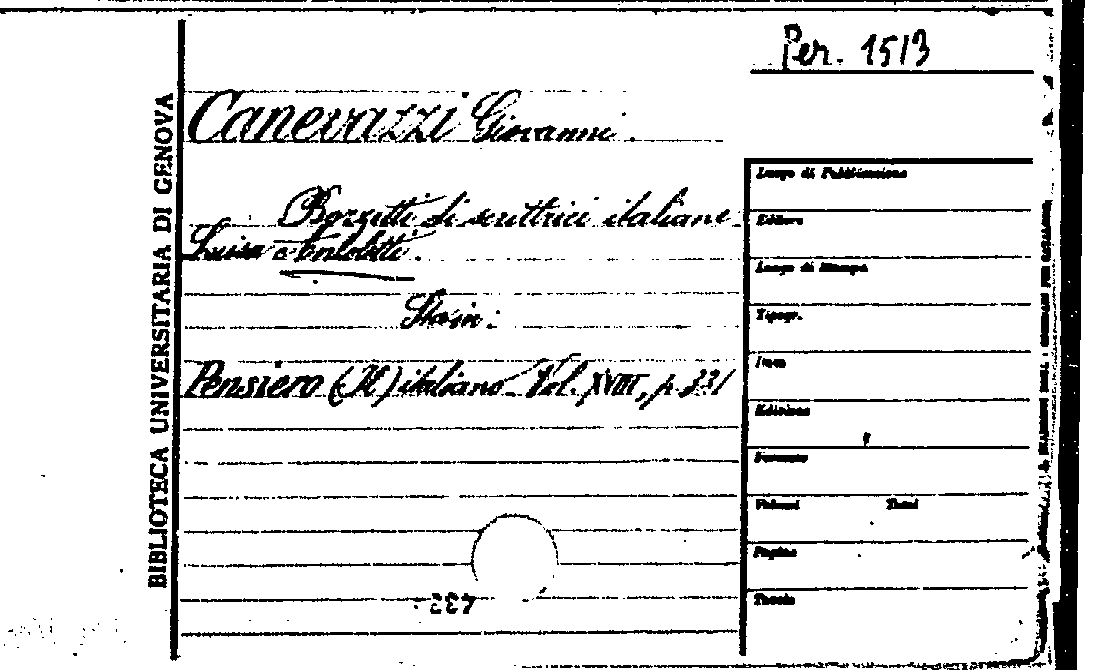 Per. 1513
BIBLIOTECA UNIVERSITARIA DI GENOVA
Canevazzi Giovanni.
Bozzetti di scrittrici italiane
Luisa
Sta in:
Pensiero (Il) italiano. Vol. XVIII, p. 331
Luogo di Pubblicazione
Editore
Luogo di Stampa
Tipogr.
Anno
Edizione
Formato
Volumi Tomi
Pagine
Tavole